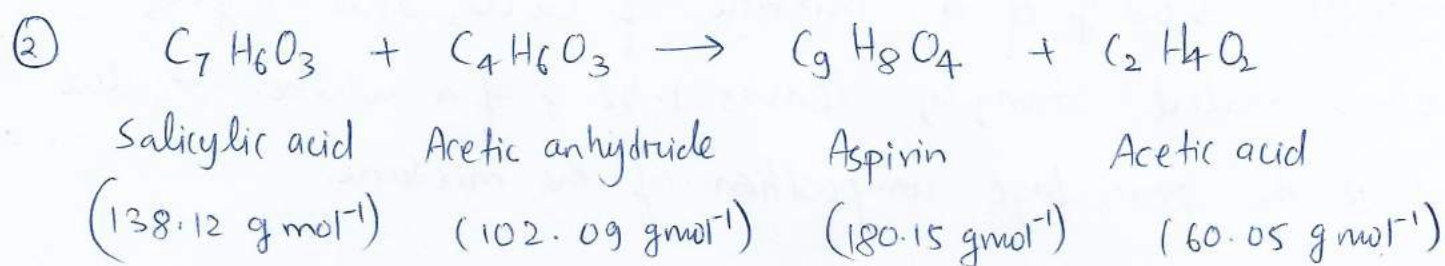 ② C₇H₆O₃ + C₄H₆O₃ → C₉H₈O₄ + C₂H₄O₂
Salicylic acid Acetic anhydride Aspirin Acetic acid
(138.12 g mol⁻¹) (102.09 gmol⁻¹) (180.15 gmol⁻¹) (60.05 g mol⁻¹)